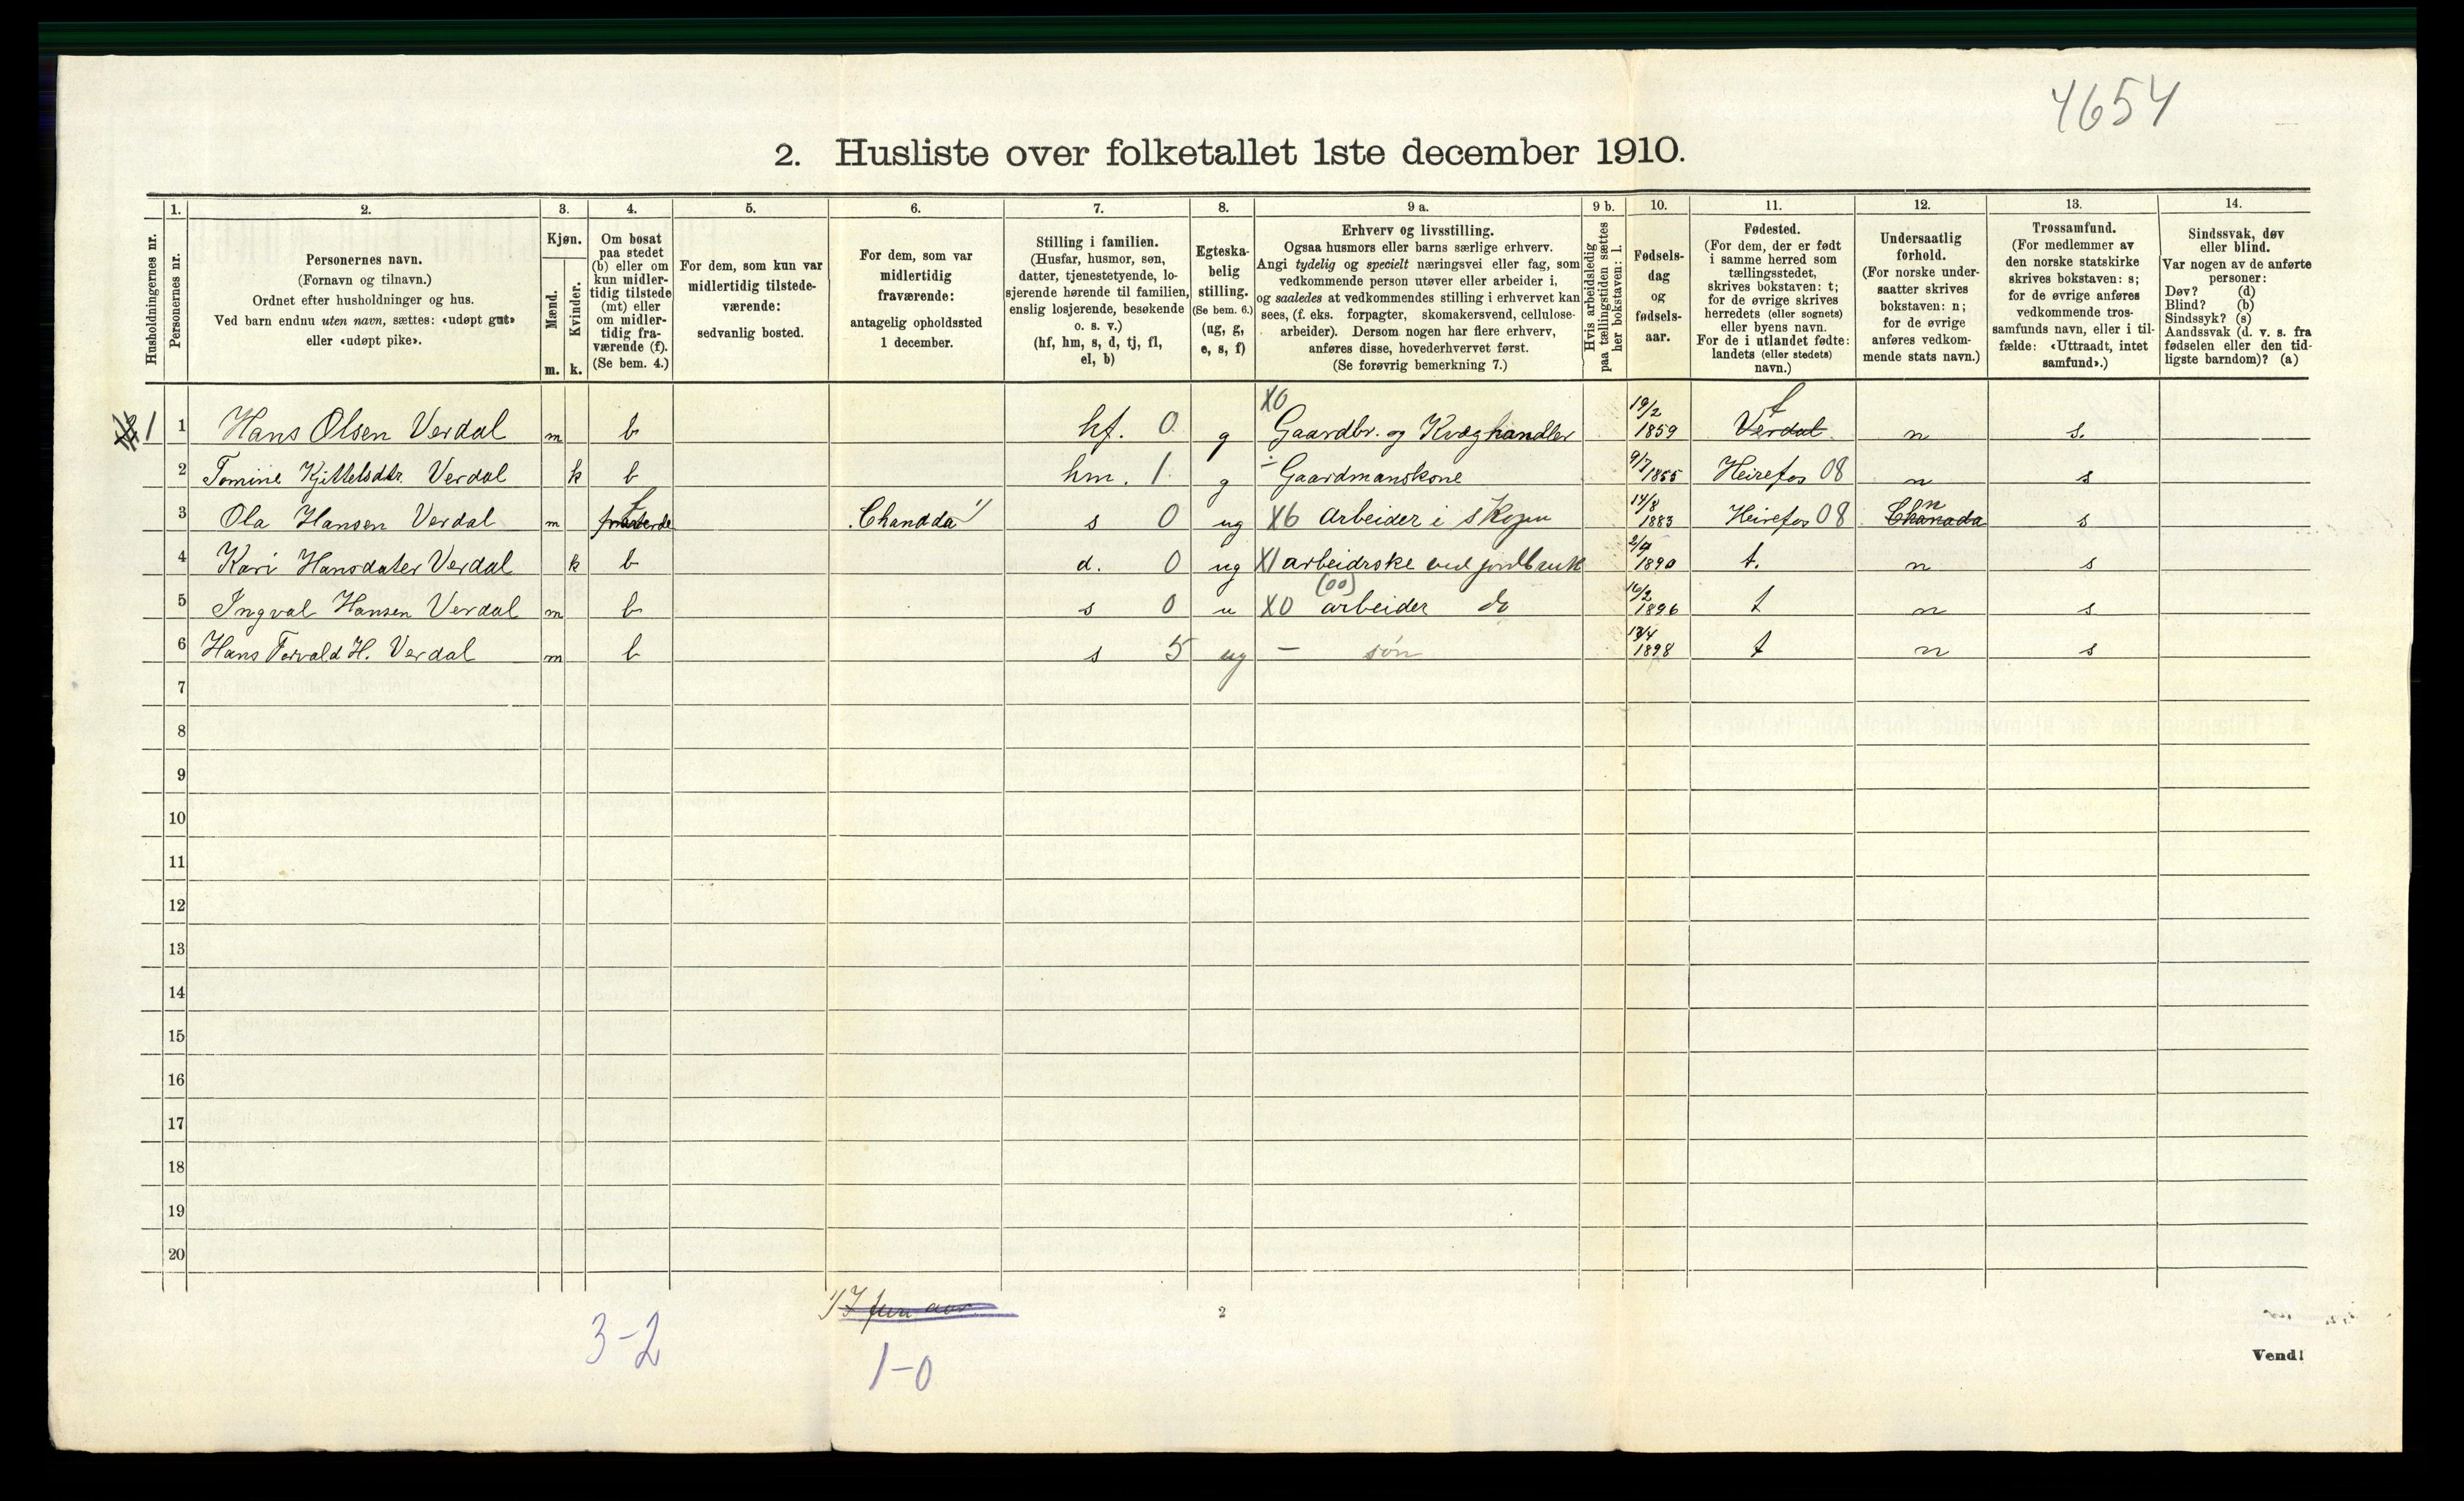 4654
2. Husliste over folketallet 1ste december 1910.
Husholdningernes nr.
1. Personernes nr.
2. Personernes navn.
(Fornavn og tilnavn.)
Ordnet efter husholdninger og hus.
Ved barn endnu uten navn, sættes: «udøpt gut»
eller «udøpt pike».
3. Kjøn.
Mænd. m.
Kvinder. k.
4. Om bosat
paa stedet
(b) eller om
kun midler-
tidig tilstede
(mt) eller
om midler-
tidig fra-
værende (f).
(Se bem. 4.)
5. For dem, som kun var
midlertidig tilstede-
værende:
sedvanlig bosted.
6. For dem, som var
midlertidig
fraværende:
antagelig opholdssted
1 december.
7. Stilling i familien.
(Husfar, husmor, søn,
datter, tjenestetyende, lo-
sjerende hørende til familien,
enslig losjerende, besøkende
o. s. v.)
(hf, hm, s, d, tj, fl,
el, b)
8. Egteska-
belig
stilling.
(Se bem. 6.)
(ug, g,
e, s, f)
9 a. Erhverv og livsstilling.
Ogsaa husmors eller barns særlige erhverv.
Angi tydelig og specielt næringsvei eller fag, som
vedkommende person utøver eller arbeider i,
og saaledes at vedkommendes stilling i erhvervet kan
sees, (f. eks. forpagter, skomakersvend, cellulose-
arbeider). Dersom nogen har flere erhverv,
anføres disse, hovederhvervet først.
(Se forøvrig bemerkning 7.)
9 b. Hvis arbeidsledig
paa tællingstiden sættes
her bokstaven: l.
10. Fødsels-
dag
og
fødsels-
aar.
11. Fødested.
(For dem, der er født
i samme herred som
tællingsstedet,
skrives bokstaven: t;
for de øvrige skrives
herredets (eller sognets)
eller byens navn.
For de i utlandet fødte:
landets (eller stedets)
navn.)
12. Undersaatlig
forhold.
(For norske under-
saatter skrives
bokstaven: n;
for de øvrige
anføres vedkom-
mende stats navn.)
13. Trossamfund.
(For medlemmer av
den norske statskirke
skrives bokstaven: s;
for de øvrige anføres
vedkommende tros-
samfunds navn, eller i til-
fælde: «Uttraadt, intet
samfund».)
14. Sindssvak, døv
eller blind.
Var nogen av de anførte
personer:
Døv? (d)
Blind? (b)
Sindssyk? (s)
Aandssvak (d. v. s. fra
fødselen eller den tid-
ligste barndom)? (a)
1 1 Hans Olsen Verdal m b hf. 0 g X0 Gaardbr. og Kvæghandler 19/2 1859 Verdal t n s.
2 Tomine Kjittelsdtr. Verdal k b hm. 1 g ÷ Gaardmanskone 9/7 1855 Heirefos 08 n s
3 Ola Hansen Verdal m f Chanada 1) s 0 ug X6 Arbeider i Skogen 14/8 1883 Heirefos 08 Chanada n s
4 Kari Hansdater Verdal k b d. 0 ug X1 arbeidrske ved jordbruk 1890 t. n s
5 Ingval Hansen Verdal m b s 0 u X0 (00) arbeider do 16/2 1896 t n s
6 Hans Torvald H. Verdal m b s 5 ug — søn 13/4 1898 t n s
7
8
9
10
11
12
13
14
15
16
17
18
19
20
3-2
1)
1-0
2
Vend!